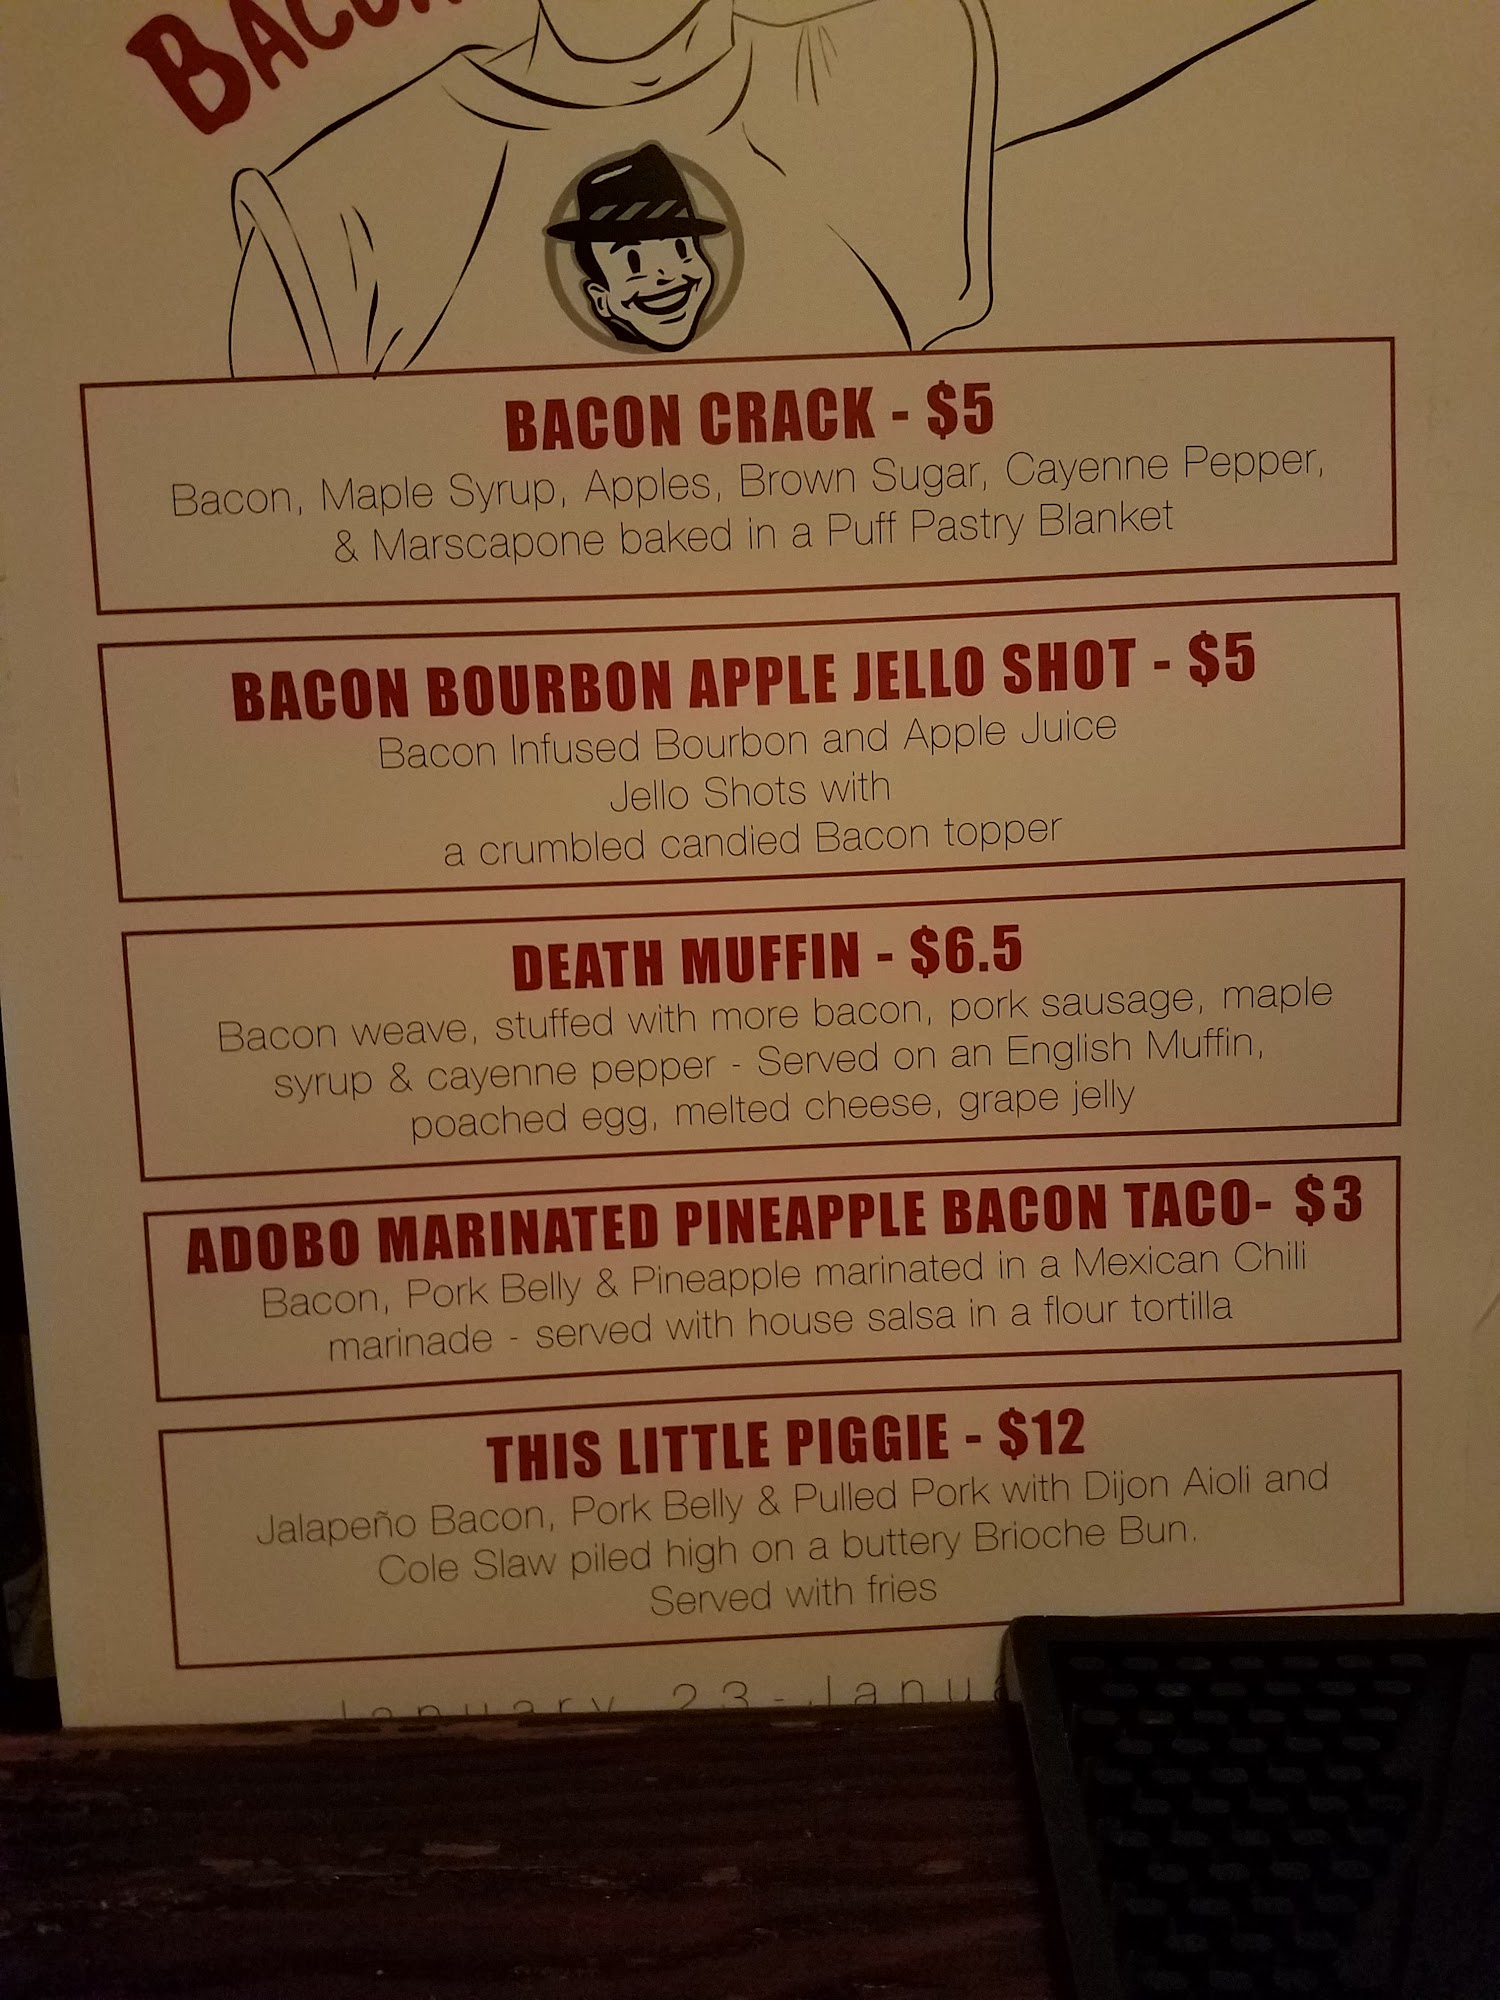 BACON CRACK - $5
Bacon, Maple Syrup, Apples, Brown Sugar, Cayenne Pepper,
& Marscapone baked in a Puff Pastry Blanket
BACON BOURBON APPLE JELLO SHOT - $5
Bacon Infused Bourbon and Apple Juice
Jello Shots with
a crumbled candied Bacon topper
DEATH MUFFIN - $6.5
Bacon weave, stuffed with more bacon, pork sausage, maple
syrup & cayenne pepper - Served on an English Muffin,
poached egg, melted cheese, grape jelly
ADOBO MARINATED PINEAPPLE BACON TACO- $3
Bacon, Pork Belly & Pineapple marinated in a Mexican Chili
marinade - served with house salsa in a flour tortilla
THIS LITTLE PIGGIE - $12
Jalapeño Bacon, Pork Belly & Pulled Pork with Dijon Aioli and
Cole Slaw piled high on a buttery Brioche Bun.
Served with fries
January 23-